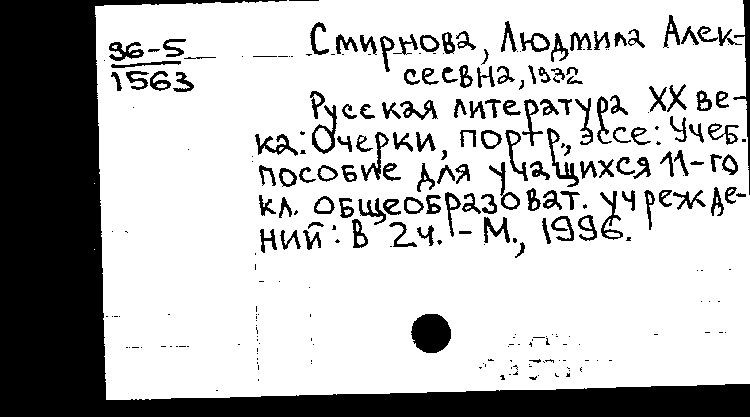 96-5
1563
Смирнова, Людмила Алек-
сеевна, 1932
Русская литература XX ве-
ка: Очерки, портр., эссе: Учеб.
пособие для учащихся 11-го
кл. общеобразоват. учрежде-
ний: В 2ч. - М., 1996.